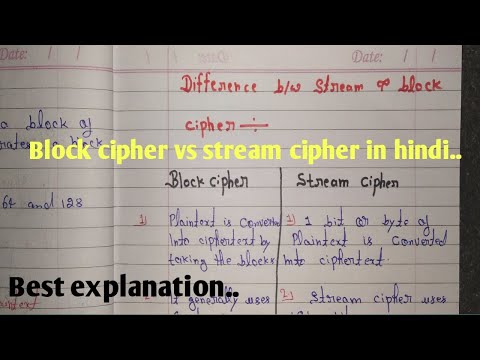 Date:
Date:
Difference b/w Stream & block
cipher
a block of
block
64 and 128
Block cipher vs stream cipher in hindi..
Block cipher
Stream Cipher
1) Plaintext is Converted
Into ciphertext by
taking the blocks
1) 1 bit or byte of
Plaintext is Converted
into ciphertext.
Best explanation..
2) It generally uses
2) Stream cipher uses